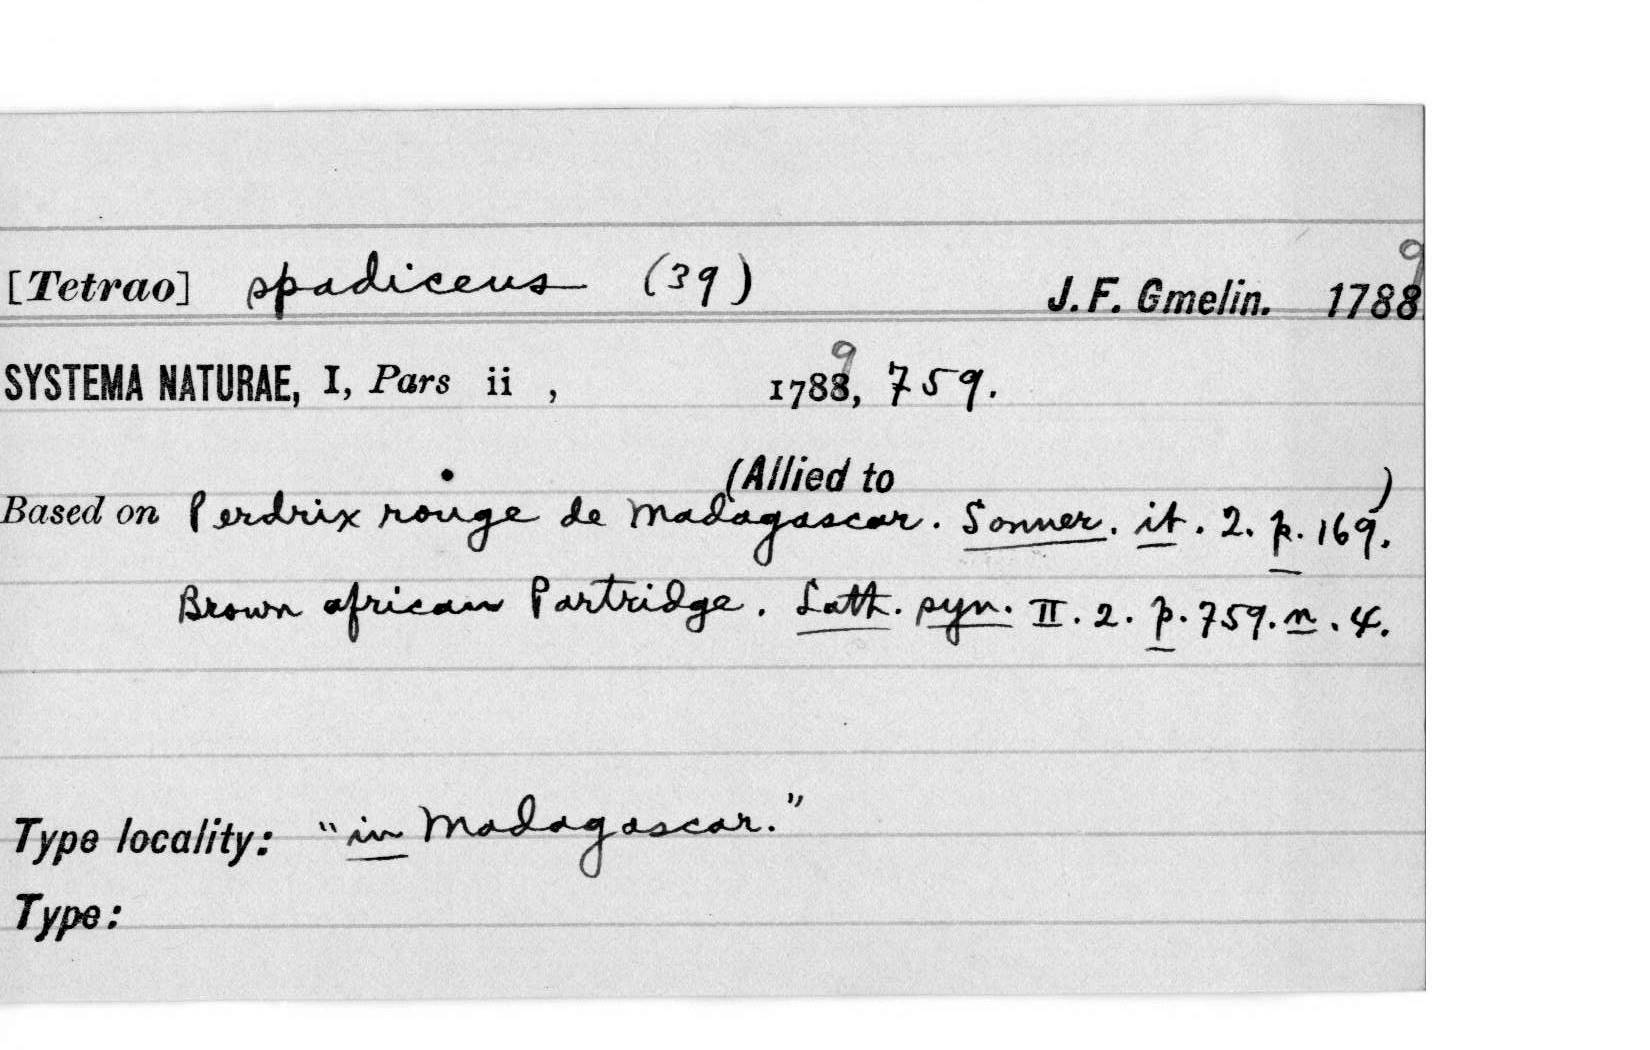 [Tetrao] spadiceus (39) J. F. Gmelin. 1788 9
SYSTEMA NATURAE, I, Pars ii , 1788 9, 759.
(Allied to )
Based on Perdrix rouge de Madagascar. Sonner. it. 2. p. 169.
Brown african Partridge. Lath. syn. II. 2. p. 759. n. 4.
Type locality: "in Madagascar."
Type: